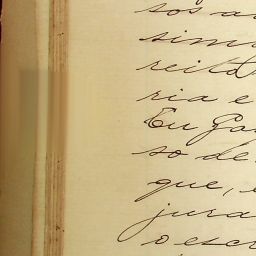 sos a
sim
reito
ria e
Eu Ga
so de
que,
jura
o escr